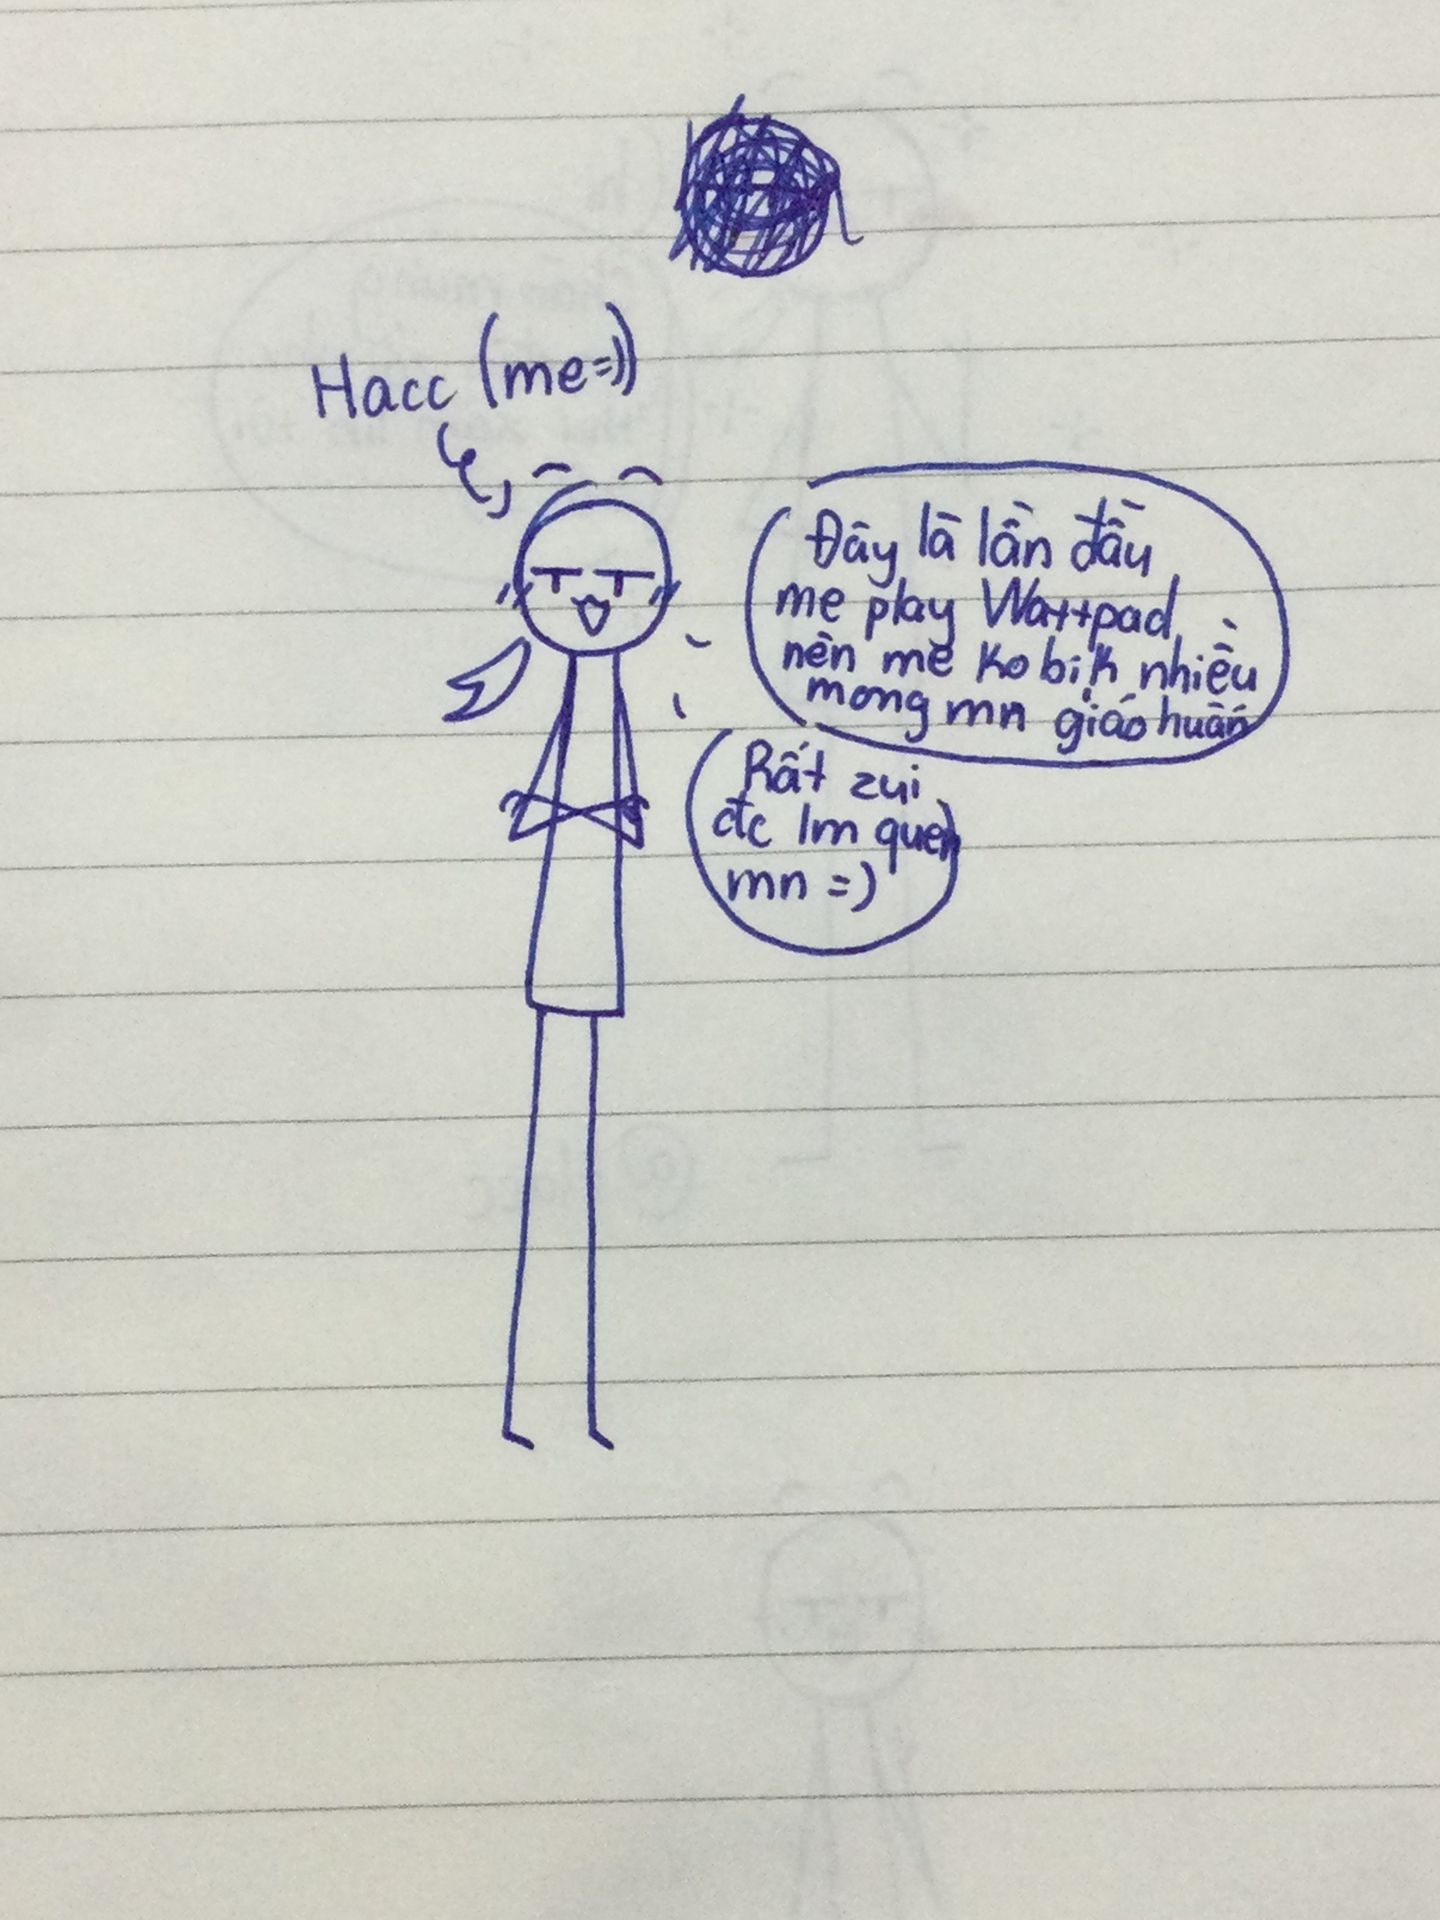 Hacc (me=))
Đây là lần đầu
me play Wattpad
nên me ko bik nhiều
mong mn giáo huấn
Rất zui
đc lm quen
mn =)